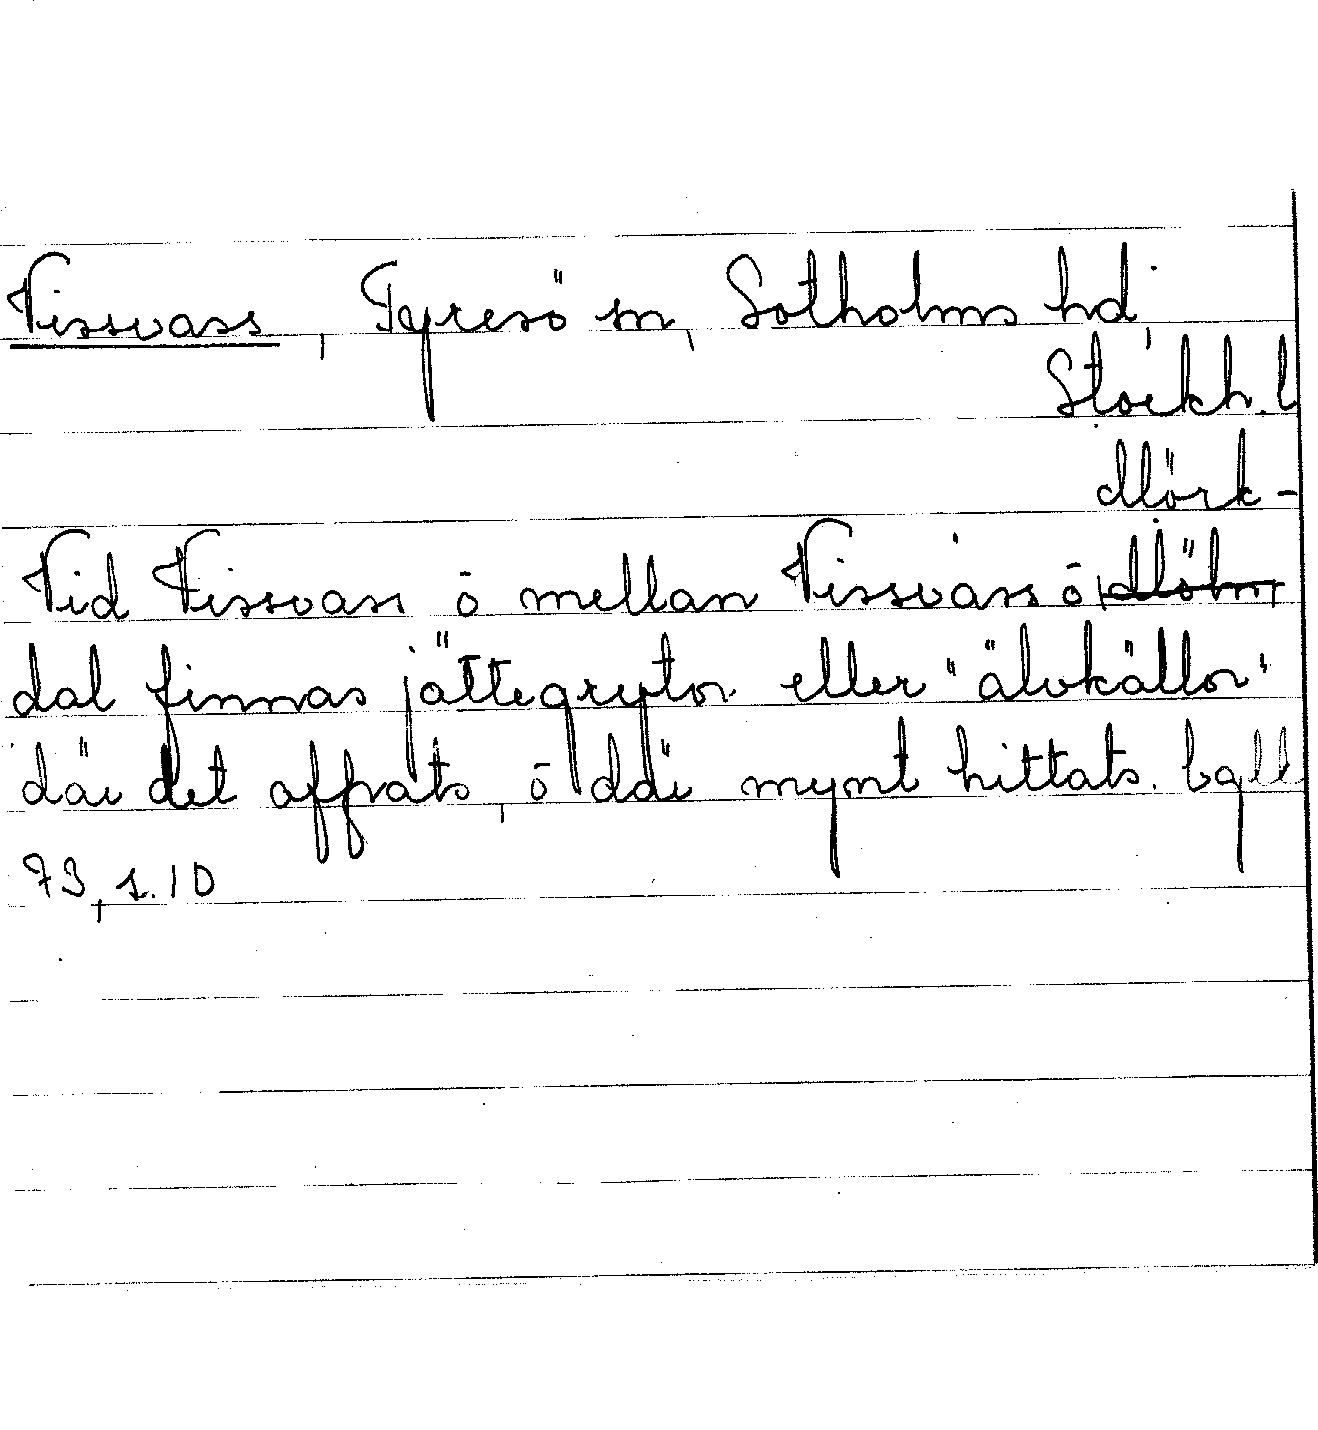 Vissvass, Tyresö sn, Sotholms hd,
Stockh. l
Mörk-
Vid Vissvass ō mellan Vissvass ō
dal finnas jättegrytor eller "älvkällor"
där det offrats, ō där mynt hittats.
73, s. 10